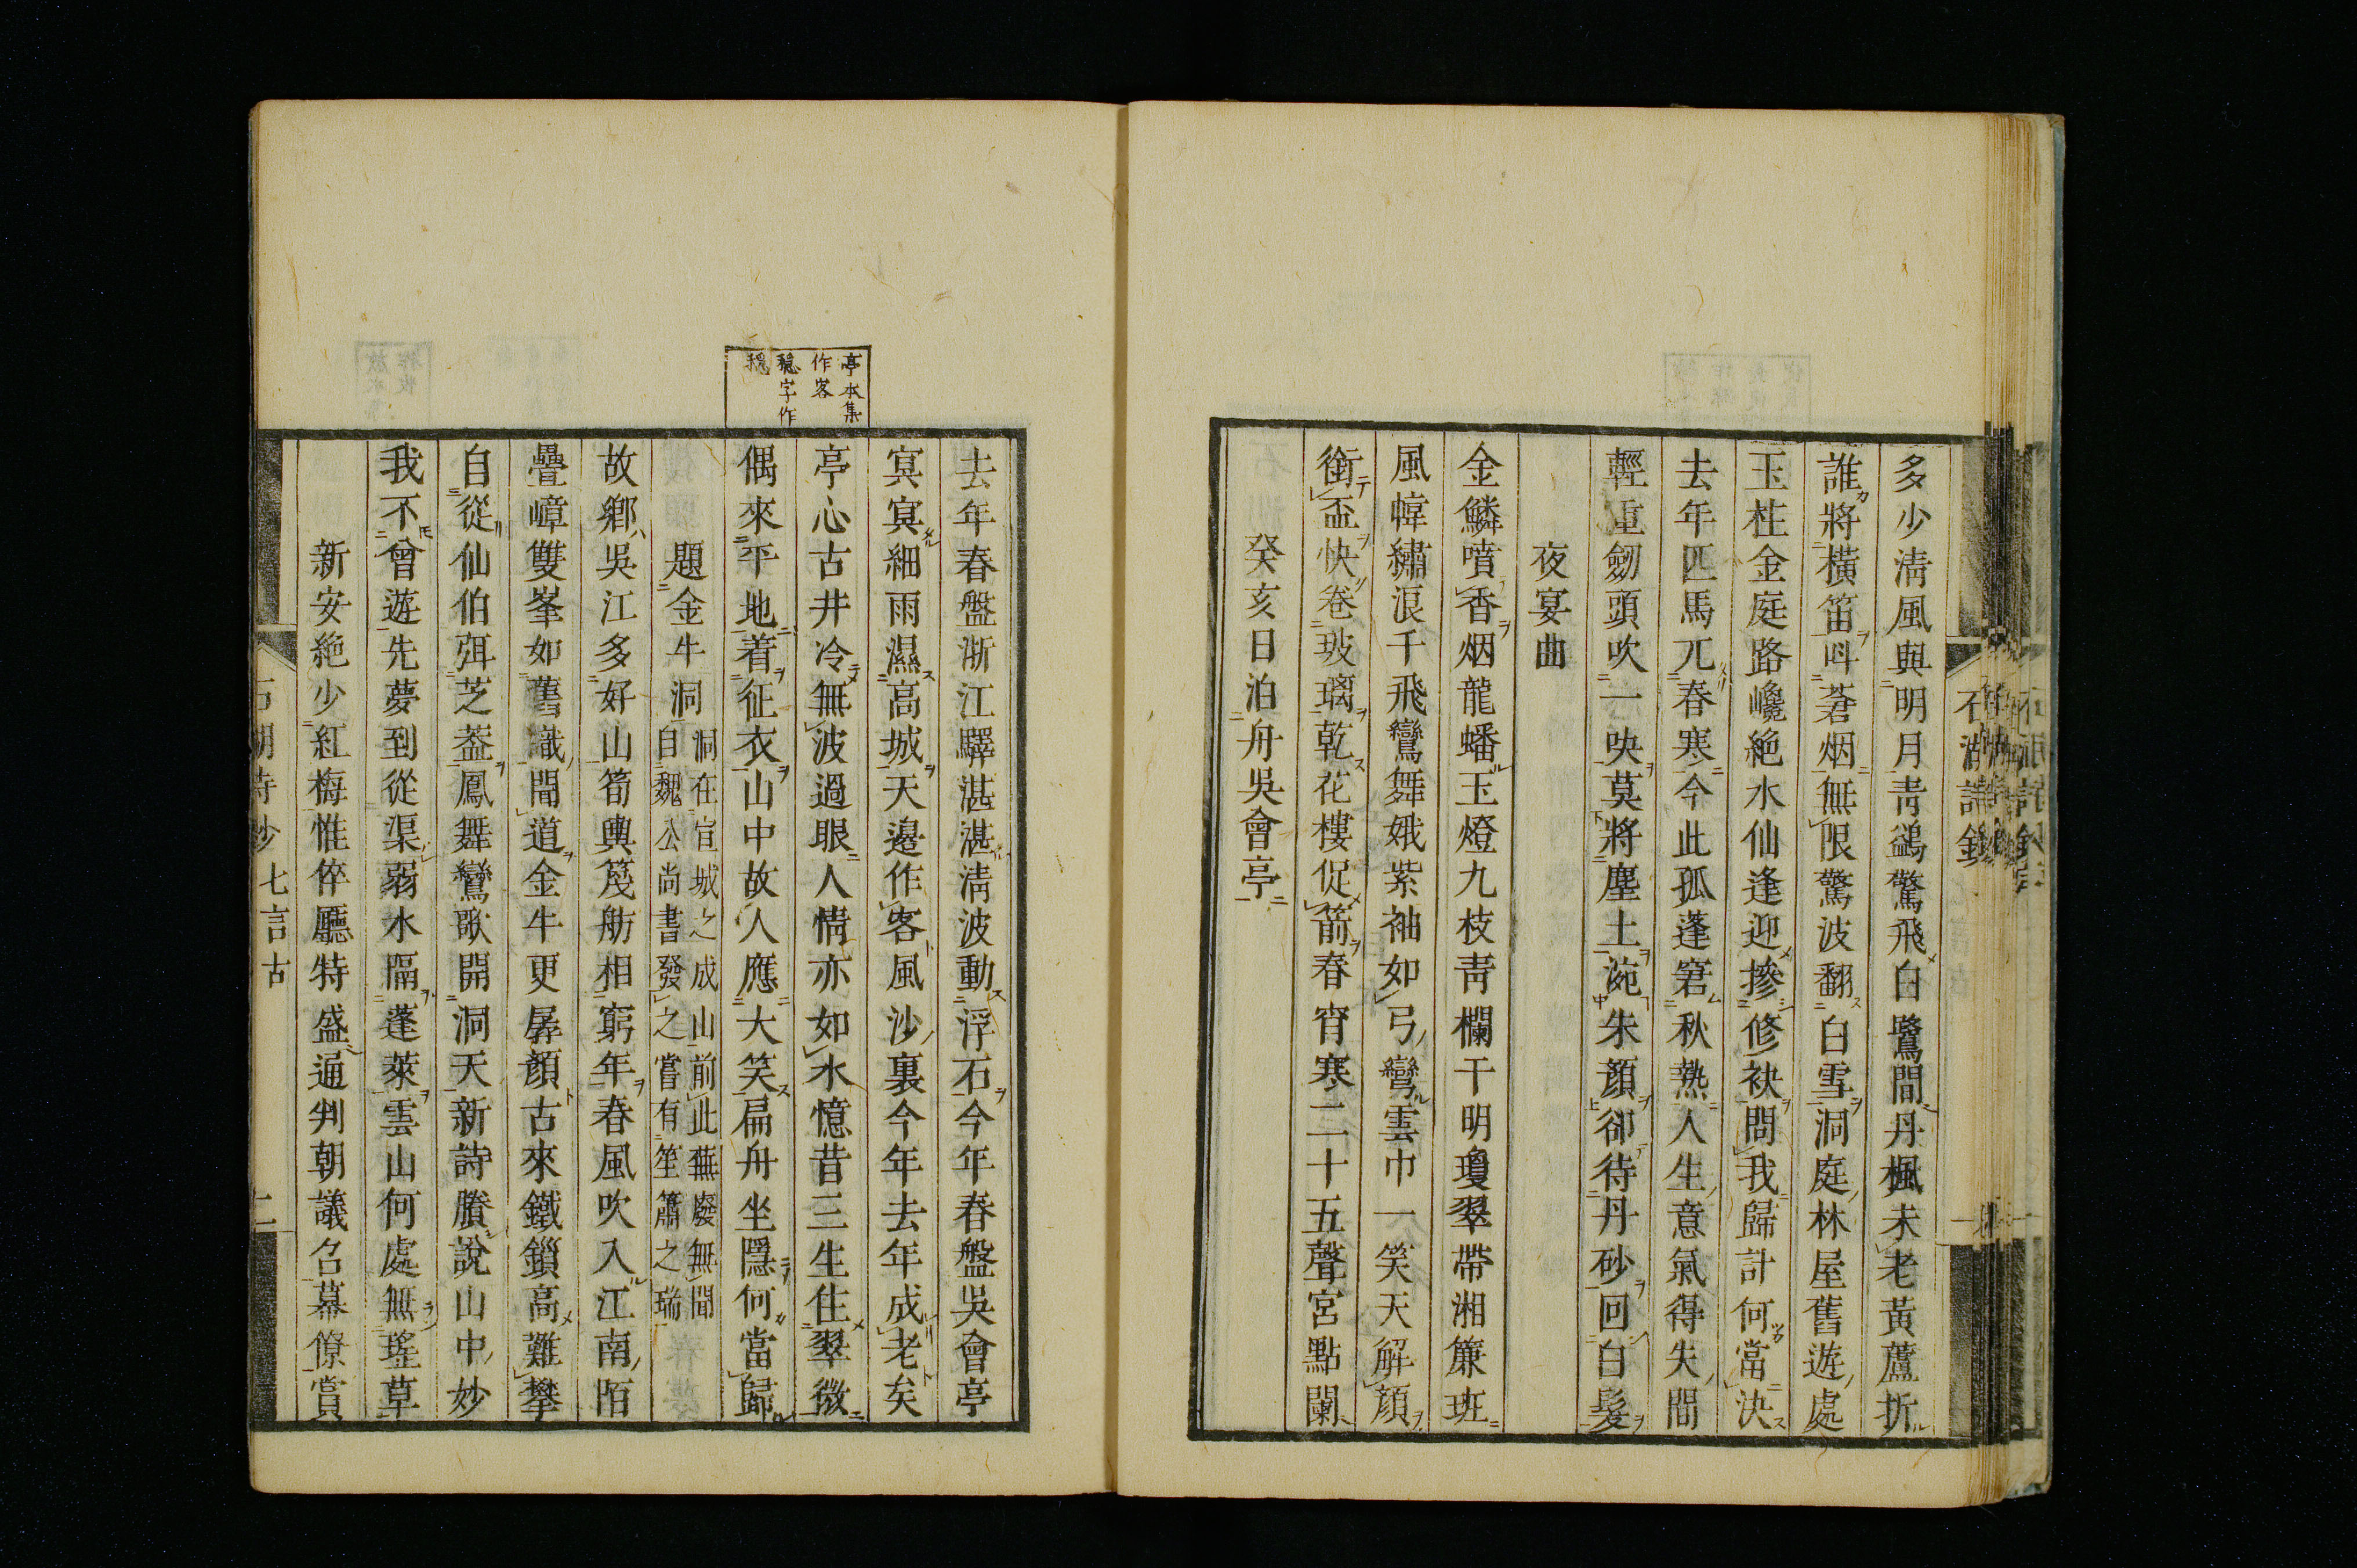 多少淸風與明月靑鷁驚飛白鷺間丹楓未老黃蘆折
誰將橫笛呌蒼烟無限驚波翻白雪洞庭林屋舊遊處
玉柱金庭路巉絶水仙逢迎摻修袂問我歸計何當決
去年匹馬兀春寒今此孤蓬窘秋熱人生意氣得失間
輕重劒頭吹一吷莫將塵土涴朱顏卻待丹砂回白髮
夜宴曲
金鱗噴香烟龍蟠玉燈九枝靑欄干明瓊翠帶湘簾班
風幃繡浪千飛鸞舞娥紫袖如弓彎雲巾一笑天解顏
銜盃快卷玻璃乾花樓促箭春宵寒二十五聲宮點闌
癸亥日泊舟吳會亭
亭本集
作客
穩字作
穏
去年春盤浙江驛湛湛淸波動浮石今年春盤吳會亭
冥冥細雨濕高城天邉作客風沙裏今年去年成老矣
亭心古井冷無波過眼人情亦如水憶昔三生住翠微
偶來平地着征衣山中故人應大笑扁舟坐隱何當歸
題金牛洞
洞在宣城之成山前此蕪廢無聞
自魏公尚書發之嘗有笙簫之瑞
故鄕吳江多好山筍輿篾舫相窮年春風吹入江南陌
疊嶂雙峯如舊識聞道金牛更孱顏古來鐵鎖高難攀
自從仙伯弭芝葢鳳舞鸞歌開洞天新詩賸說山中妙
我不曾遊先夢到從渠弱水隔蓬萊雲山何處無瑤草
新安絶少紅梅惟倅廳特盛通判朝議召幕僚賞
石湖詩鈔 七言古